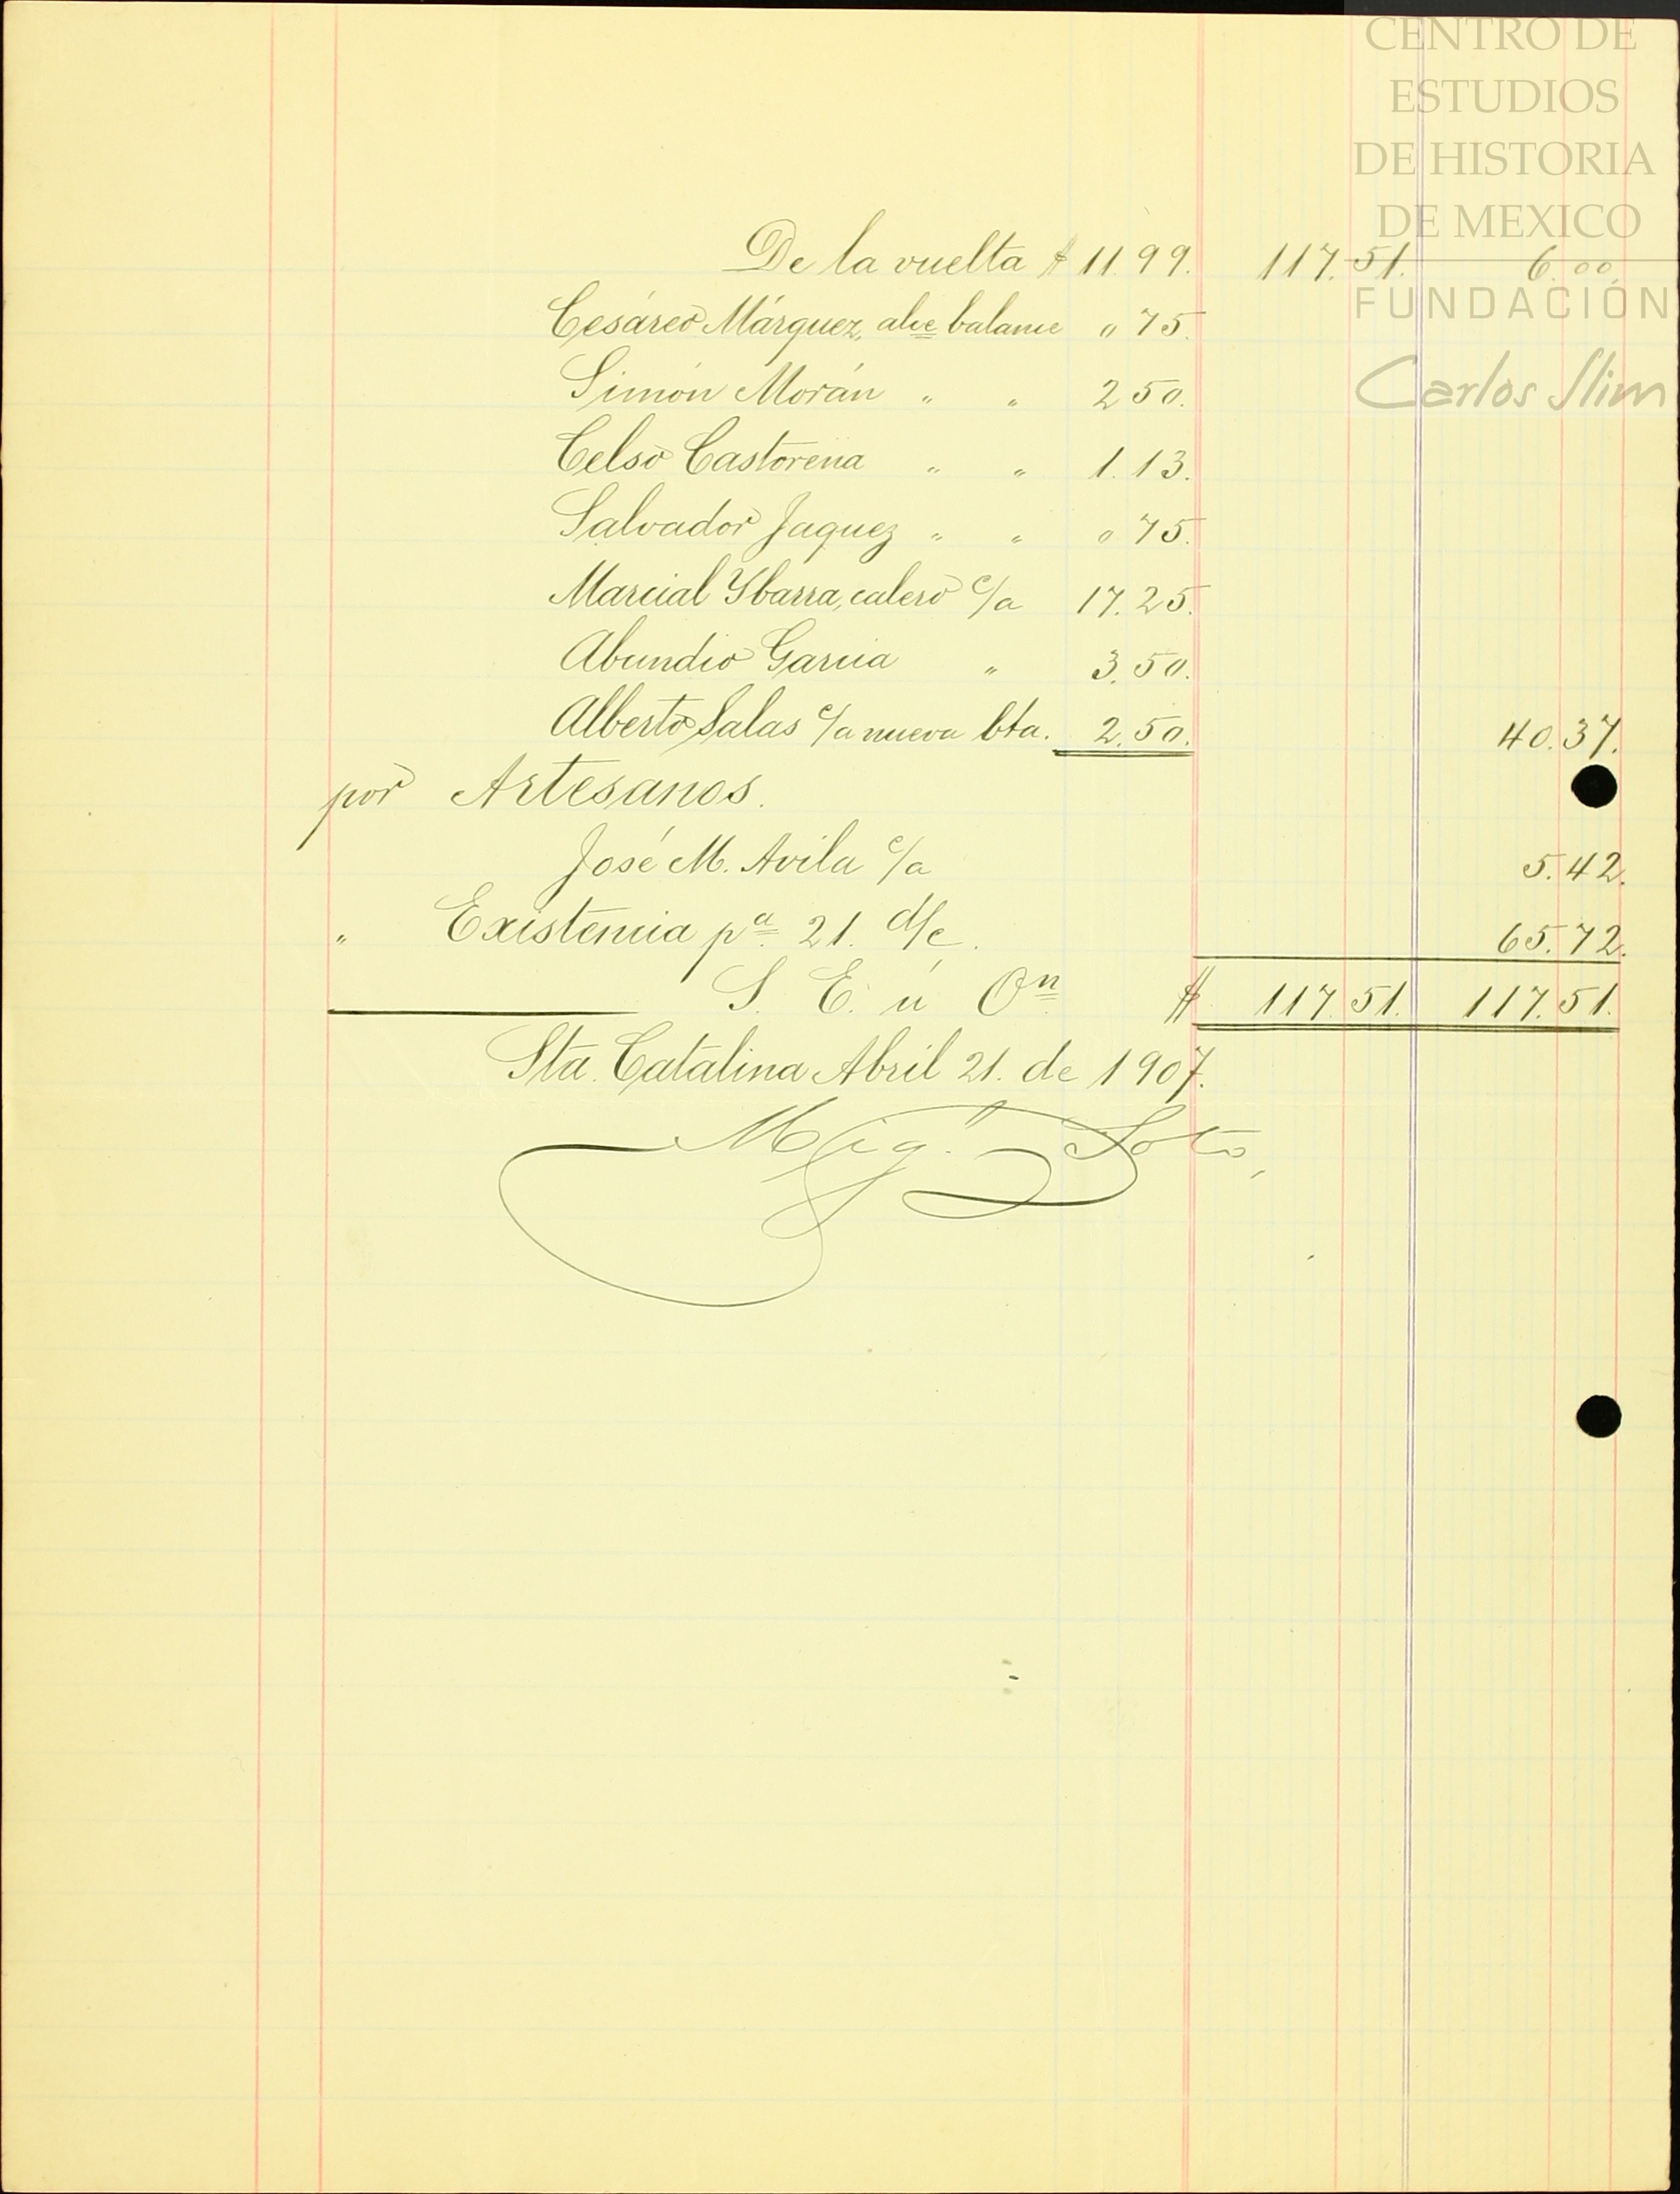 CENTRO DE
ESTUDIOS
DE HISTORIA
DE MEXICO
FUNDACIÓN
Carlos Slim
De la vuelta $ 11.99. 117.51. 6.00
Cesáreo Márquez, abe balance " 75.
Simón Morán " " 2 50.
Celso Castorena " " 1.13.
Salvador Jaquez " " 0 75.
Marcial Ybarra, calero c/a 17.25.
Abundio Garcia " 3.50.
Alberto Salas c/a nueva bta. 2.50. 40.37.
por Artesanos.
José M. Avila c/a 5.42.
" Existencia pa. 21. d/c. 65.72.
S. E. ú On $ 117.51. 117.51.
Sta. Catalina Abril 21. de 1907.
Migl. Soto,